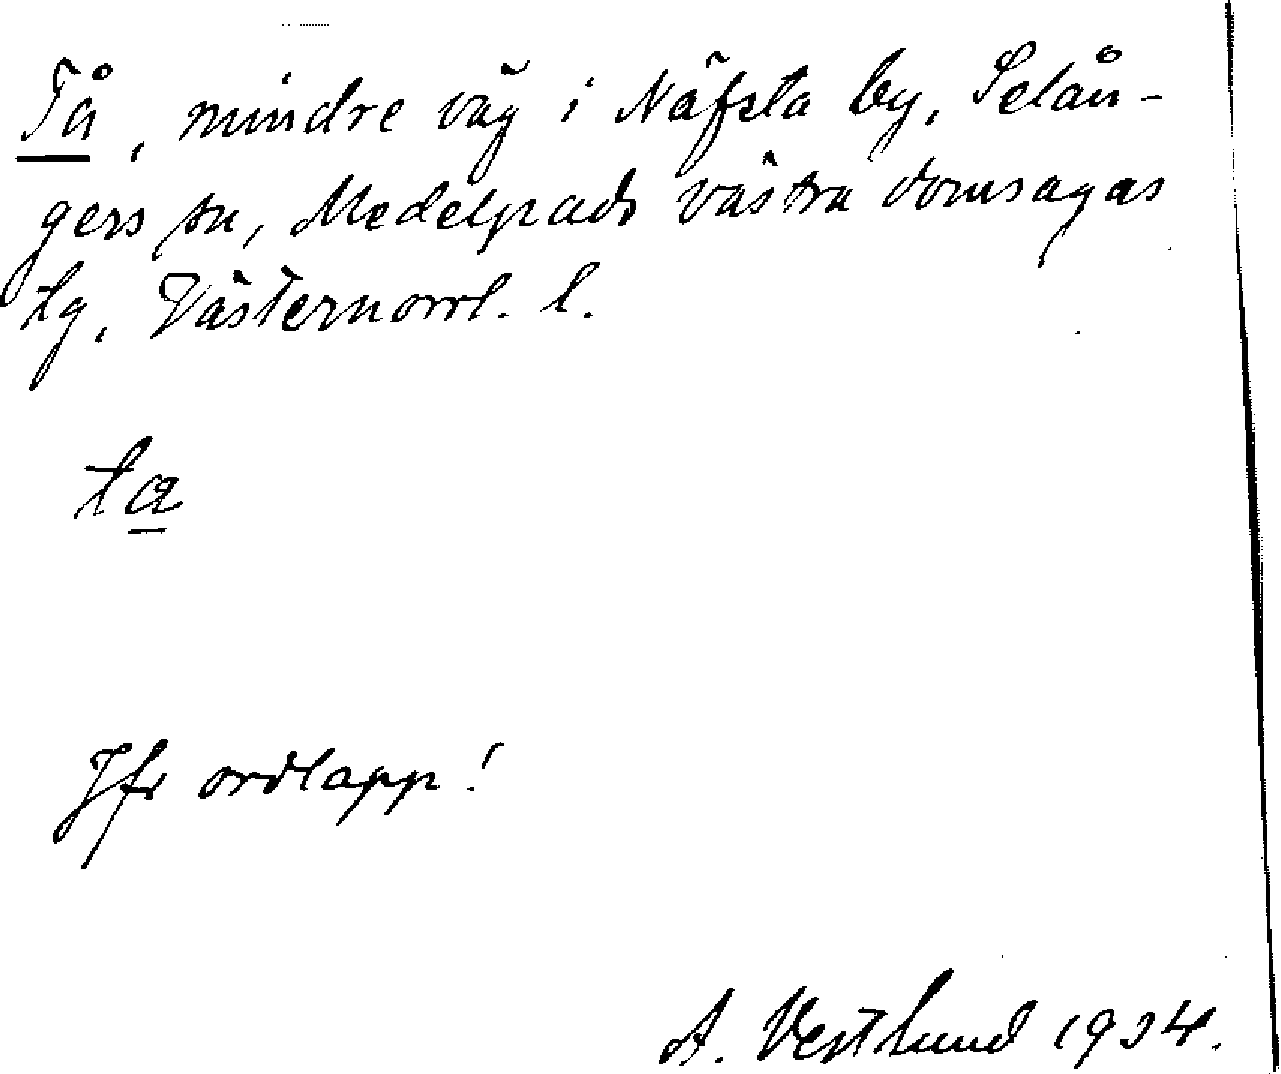 Tå, mindre väg i Näfsta by, Selån-
gers sn, Medelpads västra domsagas
tg, Västernorrl. l.
ta
Jfr ordlapp!
A. Vestlund 1934.